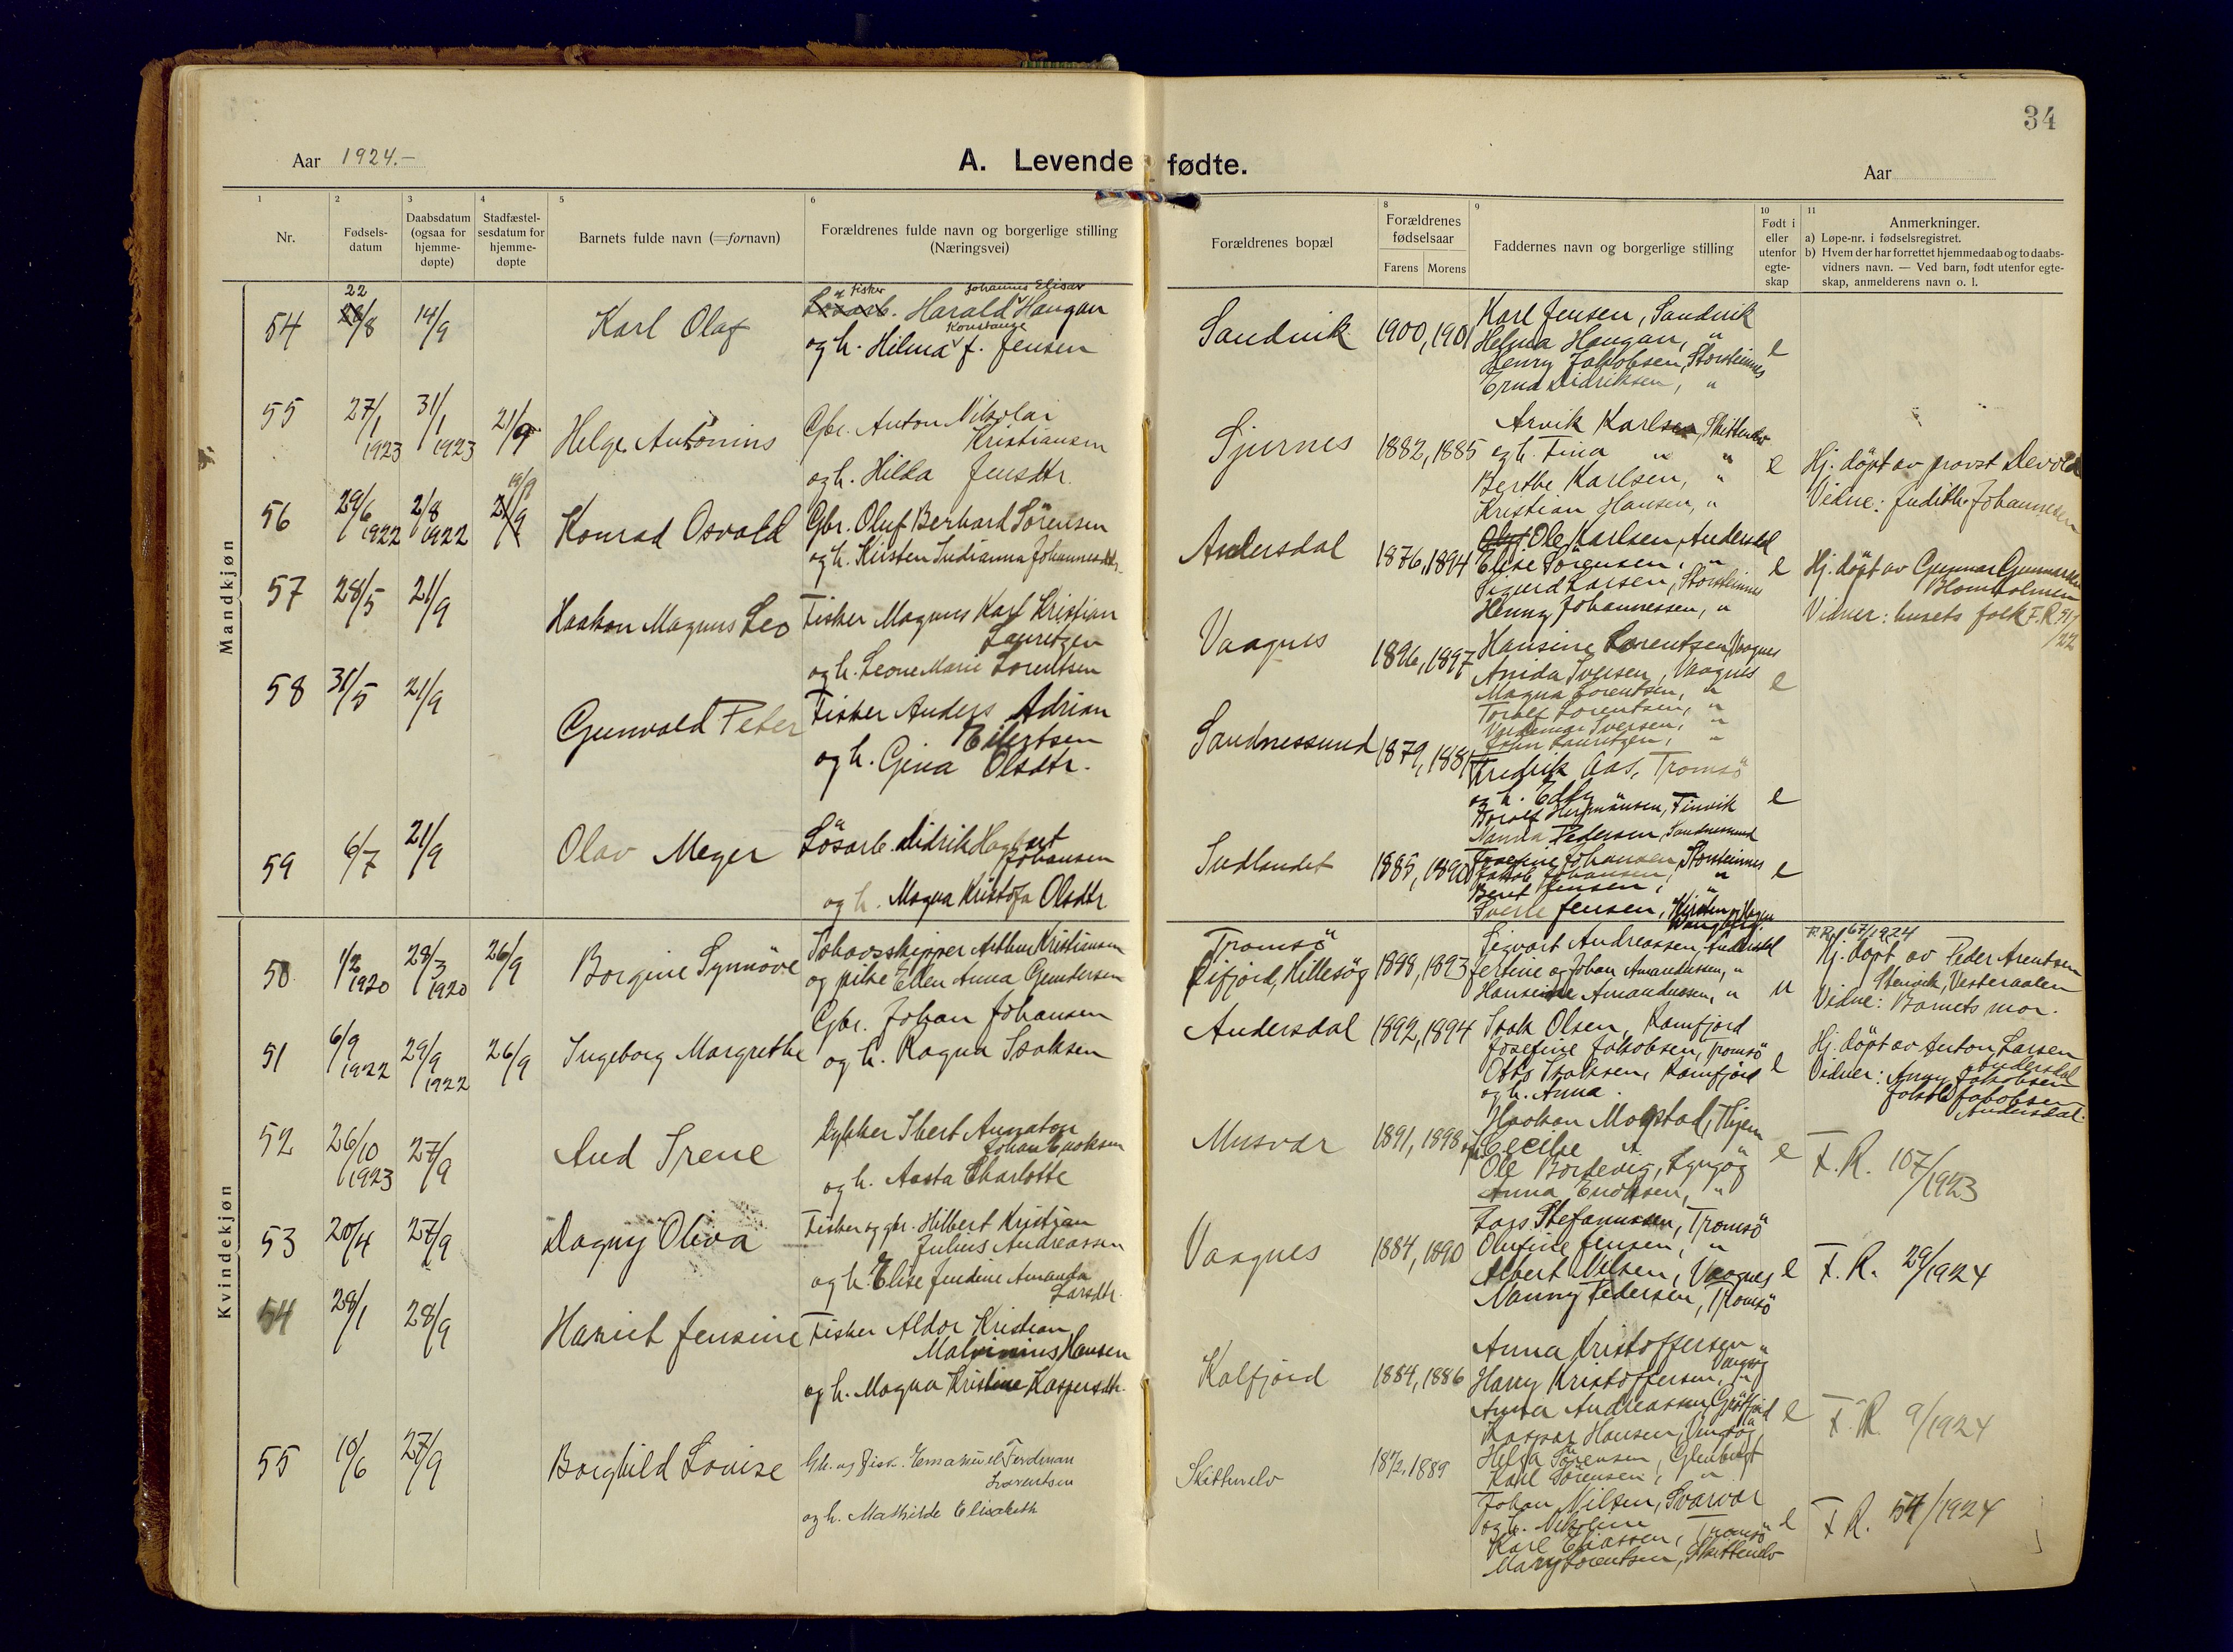 34
Aar 1924.-
A. Levende fødte.
Aar
1 2 3 4 5 6 8 9 10 11
Nr.
Fødsels-
datum
Daabsdatum
(ogsaa for
hjemme-
døpte)
Stadfæstel-
sesdatum for
hjemme-
døpte
Barnets fulde navn (=fornavn)
Forældrenes fulde navn og borgerlige stilling
(Næringsvei)
Forældrenes bopæl
Forældrenes
fødselsaar
Farens Morens
Faddernes navn og borgerlige stilling
Født i
eller
utenfor
egte-
skap
Anmerkninger.
a) Løpe-nr. i fødselsregistret.
b) Hvem der har forrettet hjemmedaab og to daabs-
vidners navn. — Ved barn, født utenfor egte-
skap, anmelderens navn o. l.
Mandkjøn
54 22/8 14/9 Karl Olaf
Fisker Johannes Elisar
Harald Haugan
Konstanse
og h. Hilma f. Jensen
Sandvik 1900, 1901
Karl Jensen, Sandvik
Helma Haugan, "
Henry Jakobsen, Storsteinnes
Erna Didriksen, "
e
55 27/1 1923 31/1 1923 21/9 Helge Antonius
Gbr. Anton Nikolai
Kristiansen
og h. Hilda Jensdtr.
Sjurnes 1882, 1885
Arvik Karlsen, Skittenelv
og h. Tina " "
Berthe Karlsen, "
Kristian Hansen, "
e
Hj. döpt av provst Devold
Vidne: Judith Johannesen
56 29/6 1922 2/8 1922 21/9 19/9 Konrad Osvald
Gbr. Oluf Berhard Sörensen
og h. Kirsten Indianna Johannesdtr.
Andersdal 1876, 1894
Olaf Ole Karlsen, Andersdal
Elise Sörensen, "
Sigurd Larsen, Storsteinnes
Henny Johannessen, "
e
Hj. döpt av Gunnar Gunnarsen
Blomholmen
Vidner: husets folk F.R. 51/22
57 28/5 21/9 Haakon Magnus Leo
Fisker Magnus Karl Kristian
Lauritzen
og h. Leone Marie Lorentsen
Vaagnes 1896, 1897
Hansine Lorentsen, Vaagnes
Anida Iversen, Vaagnes
Magna Lorentsen, "
Toralf Lorentsen, "
Valdemar Iversen, "
John Lauritzen, "
e
58 31/5 21/9 Gunvald Peter
Fisker Anders Adrian
Eilertsen
og h. Gina Olsdtr.
Sandnessund 1879, 1881
Fredrik Aas, Tromsö
og h. Edly
Toralf Hermansen, Finvik
Nanna Pedersen, Sandnessund
e
59 6/7 21/9 Olav Meyer
Lösarb. Didrik Hagbart
Johansen
og h. Magna Kristofa Olsdtr
Indlandet 1885, 1890
Josefine Johansen, Storsteinnes
Jakob Johansen, "
Beret Jensen, "
Sverre Jensen,
e
Kvindekjøn
50 1/2 1920 28/3 1920 26/9 Borgine Synnöve
Johavsskipper Arthur Kristiansen
og pike Ellen Anna Gundersen
Tromsö
Eifjord, Hillesög 1898, 1893
Sigvart Andreassen, Andersdal
Jertine og Johan Amandussen, "
Hansine Amandussen, "
u
F.R. 67/1924
Hj. döpt av Peder Arentsen
Stenvik, Vesteraalen
Vidne: Barnets mor.
51 6/9 1922 29/9 1922 26/9 Ingeborg Margrethe
Gbr. Johan Johansen
og h. Ragna Isaksen
Andersdal 1892, 1894
Isak Olsen, Ramfjord
Josefine Jakobsen, Tromsö
Otto Isaksen, Ramfjord
og h. Anna.
e
Hj. döpt av Anton Larsen
Andersdal
Vidner: Anny Jakobsen
Jakob Jakobsen
Andersdal.
52 26/10 1923 27/9 Aud Irene
Dykker Ibert Annaton
Johan Enoksen
og h. Aasta Charlotte
Musvær 1891, 1898
Haakon Mogstad, Thjem
og h. Cecilie "
Ole Bordevig, Lyngög
Anna Enoksen, "
e
F. R. 107/1923
53 20/4 27/9 Dagny Oliva
Fisker og gbr. Hilbert Kristian
Julius Andreassen
og h. Elise Jendine Amanda
Larsdtr.
Vaagnes 1884, 1890
Lars Stefanussen, Tromsö
Olufine Jensen, "
Albert Nilsen, Vaagnes
Nanny Pedersen, Tromsö
e
F. R. 29/1924
54 28/1 28/9 Hariet Jensine
Fisker Aldor Kristian
Malvinius Hansen
og h. Magna Kristine Kaspersdtr.
Kalfjord 1884, 1886
Anna Kristoffersen "
Harry Kristoffersen, "
Anna Andreassen, Grötfjord
Kaspar Hansen, Vengsög
e
F. R. 9/1924
55 10/6 27/9 Borghild Louise
Gb. og fisk. Emanuel Ferdinan
Lorentsen
og h. Mathilde Elisabeth
Skittenelv 1872, 1889
Helga Sörensen,
Karl Sörensen, "
Johan Nilsen, Svarvar
og h. Nikoline "
Karl Eliassen, Tromsö
Mary Lorentsen, Skittenelv
e
F. R. 54/1924